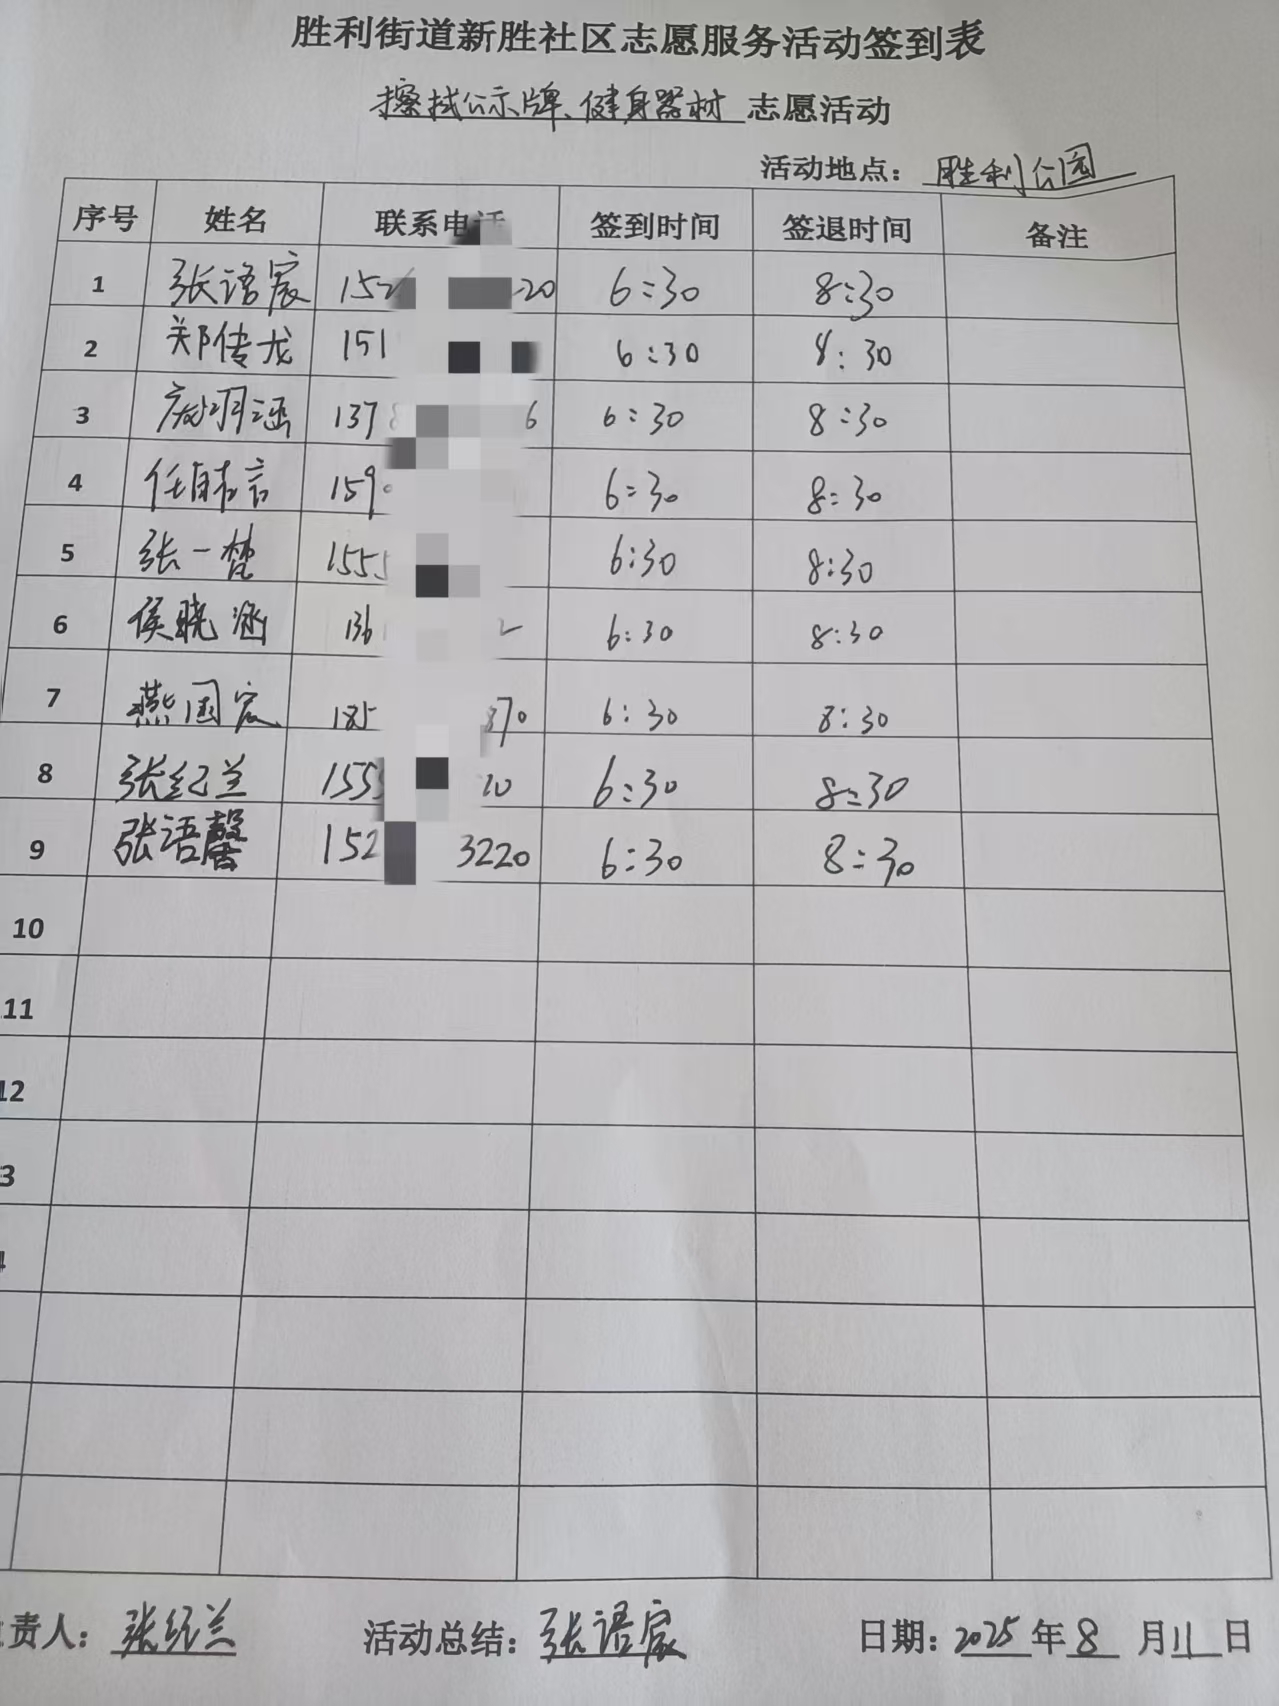 胜利街道新胜社区志愿服务活动签到表
擦拭公示牌、健身器材 志愿活动
活动地点：胜利公园
序号 姓名 联系电话 签到时间 签退时间 备注
1 张语宸 152 20 6:30 8:30
2 郑传龙 151 6:30 8:30
3 137 6 6:30 8:30
4 任 言 159 6:30 8:30
5 张一梵 1555 6:30 8:30
6 侯晓涵 136 2 6:30 8:30
7 燕国宸 185 870 6:30 8:30
8 张纪兰 155 10 6:30 8:30
9 张语馨 152 3220 6:30 8:30
10
11
12
3
4
责人：张纪兰 活动总结：张语宸 日期：2025年8月11日